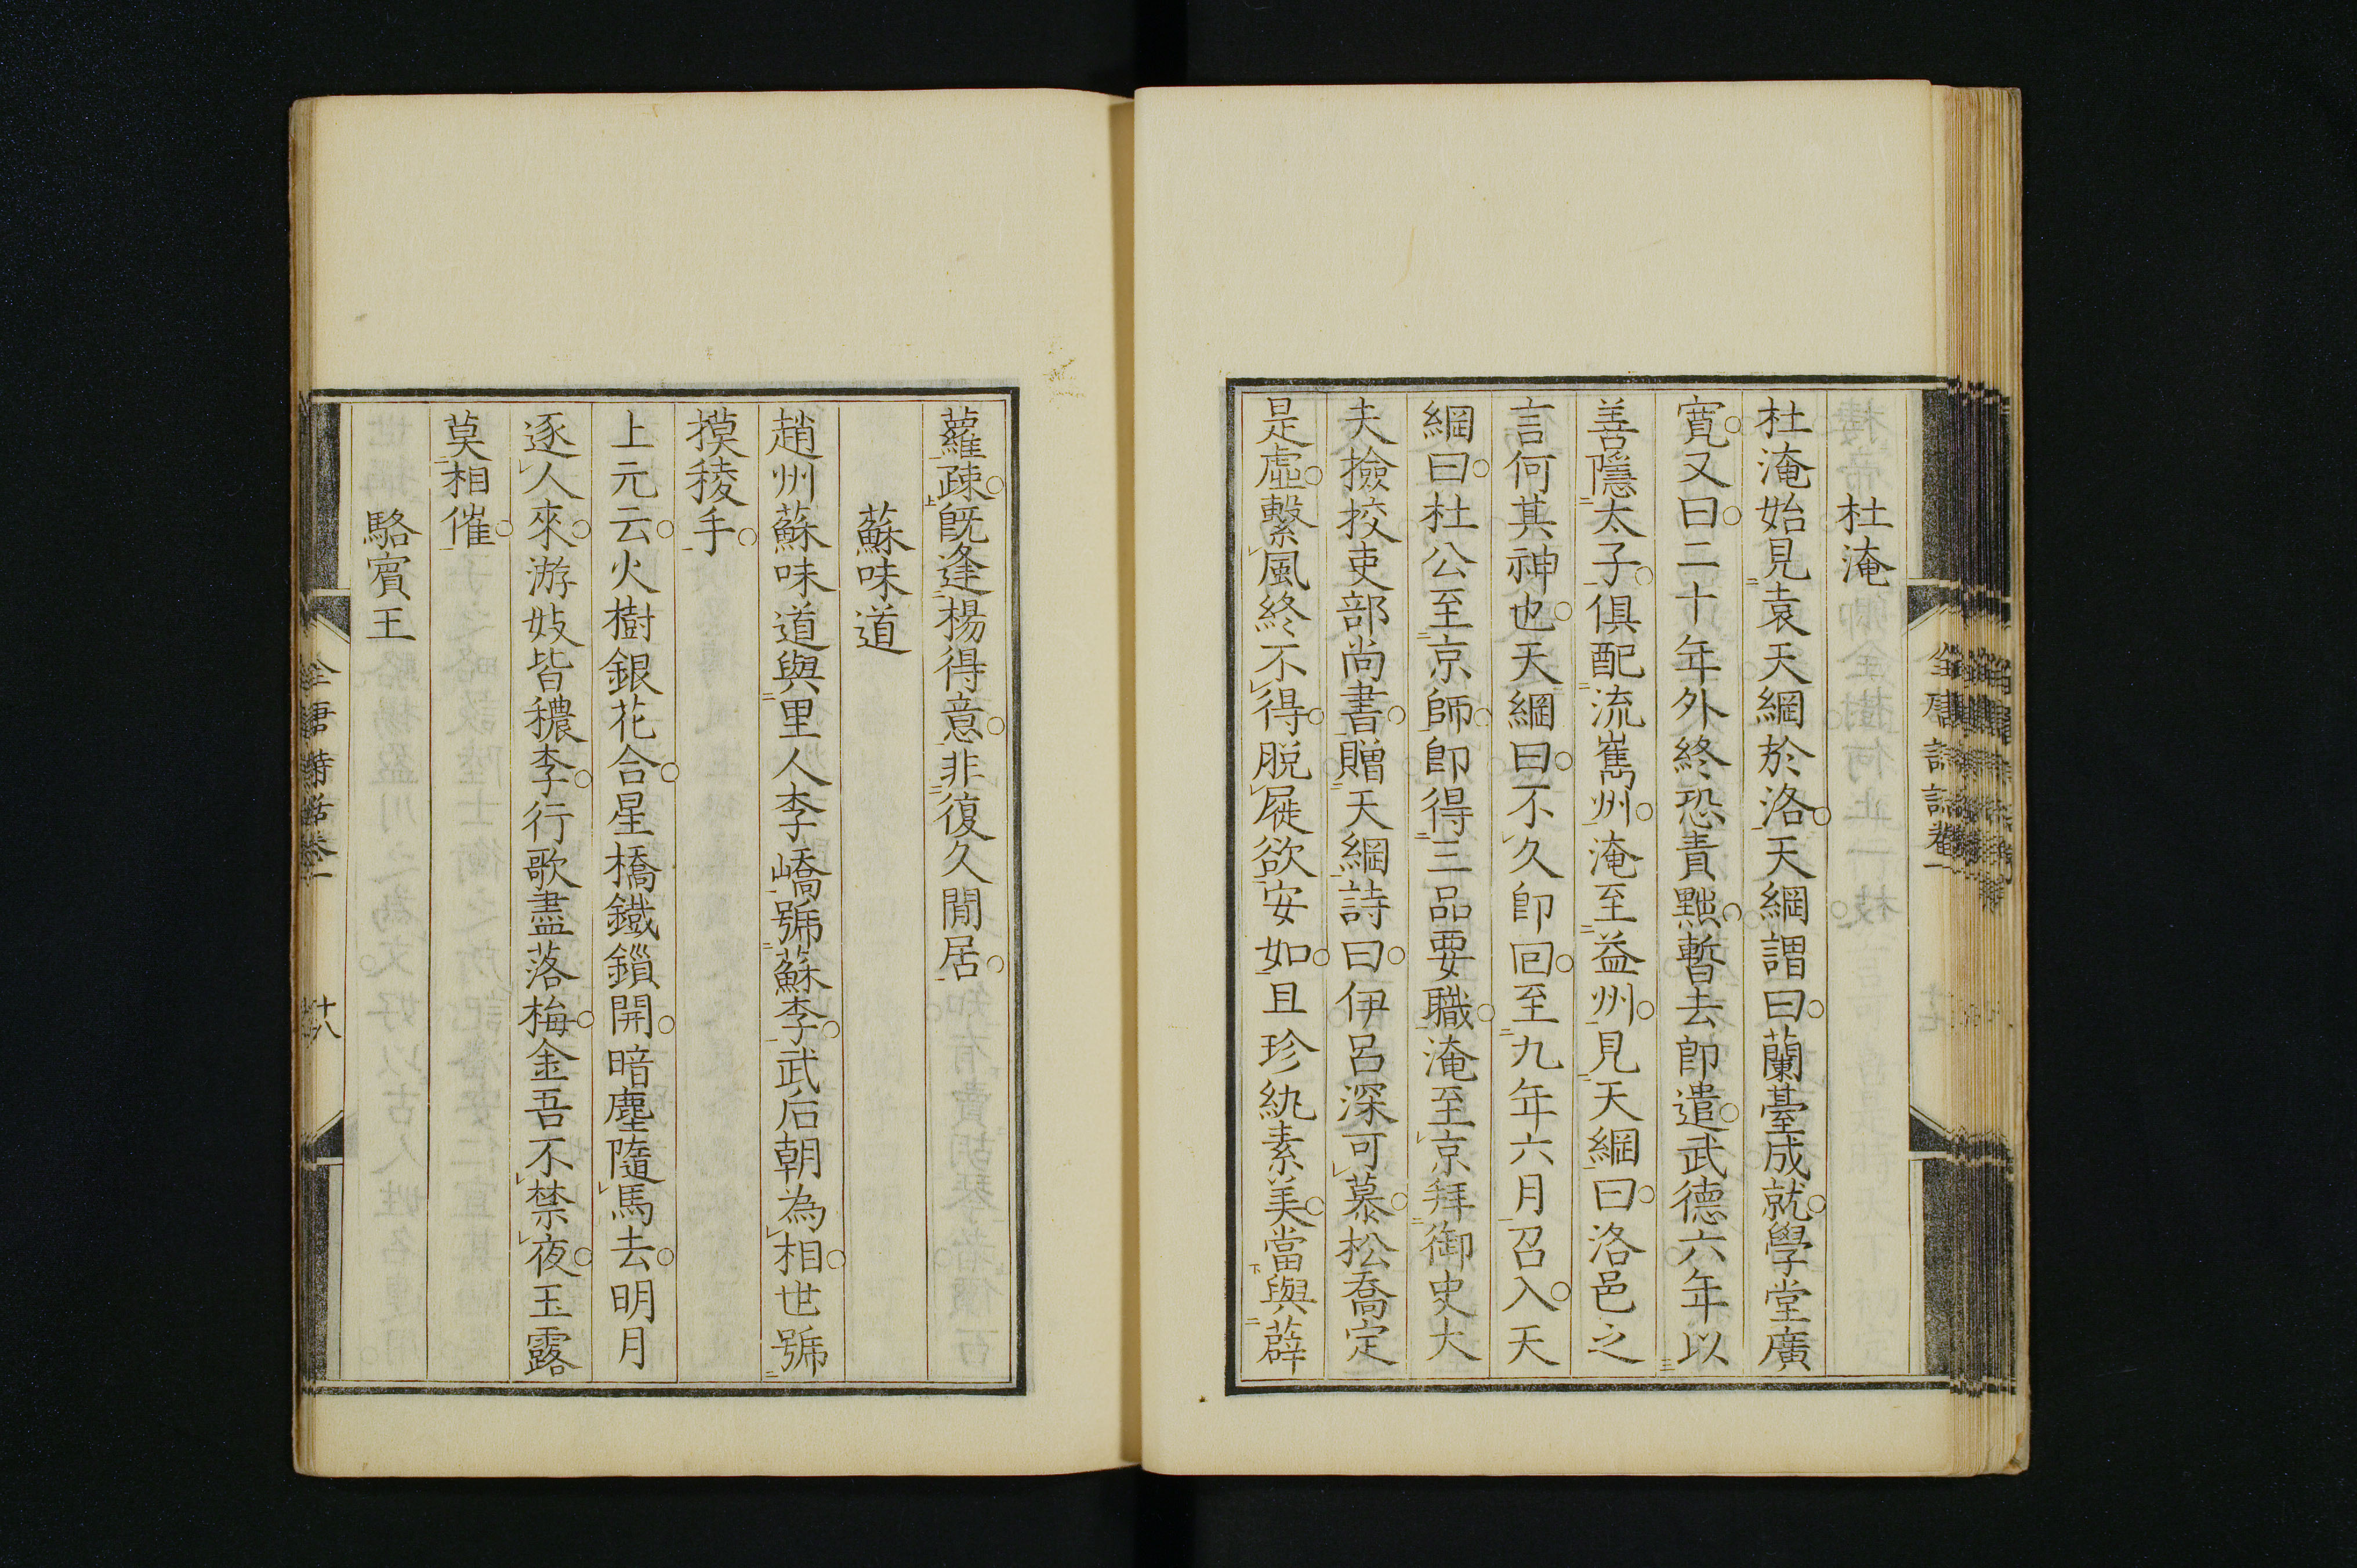 杜淹
杜淹始見袁天綱於洛天綱謂曰蘭臺成就學堂廣
寬又曰二十年外終恐責黜暫去卽遣武德六年以
善隱太子俱配流嶲州淹至益州見天綱曰洛邑之
言何其神也天綱曰不久卽回至九年六月召入天
綱曰杜公至京師卽得三品要職淹至京拜御史大
夫撿挍吏部尚書贈天綱詩曰伊呂深可慕松喬定
是虛繫風終不得脱屣欲安如且珍紈素美當與薜
蘿疎旣逢楊得意非復久閒居
蘇味道
趙州蘇味道與里人李嶠號蘇李武后朝為相世號
摸稜手
上元云火樹銀花合星橋鐵鎻開暗塵隨馬去明月
逐人來游妓皆穠李行歌盡落梅金吾不禁夜玉露
莫相催
駱賓王
全唐詩話卷一
十八